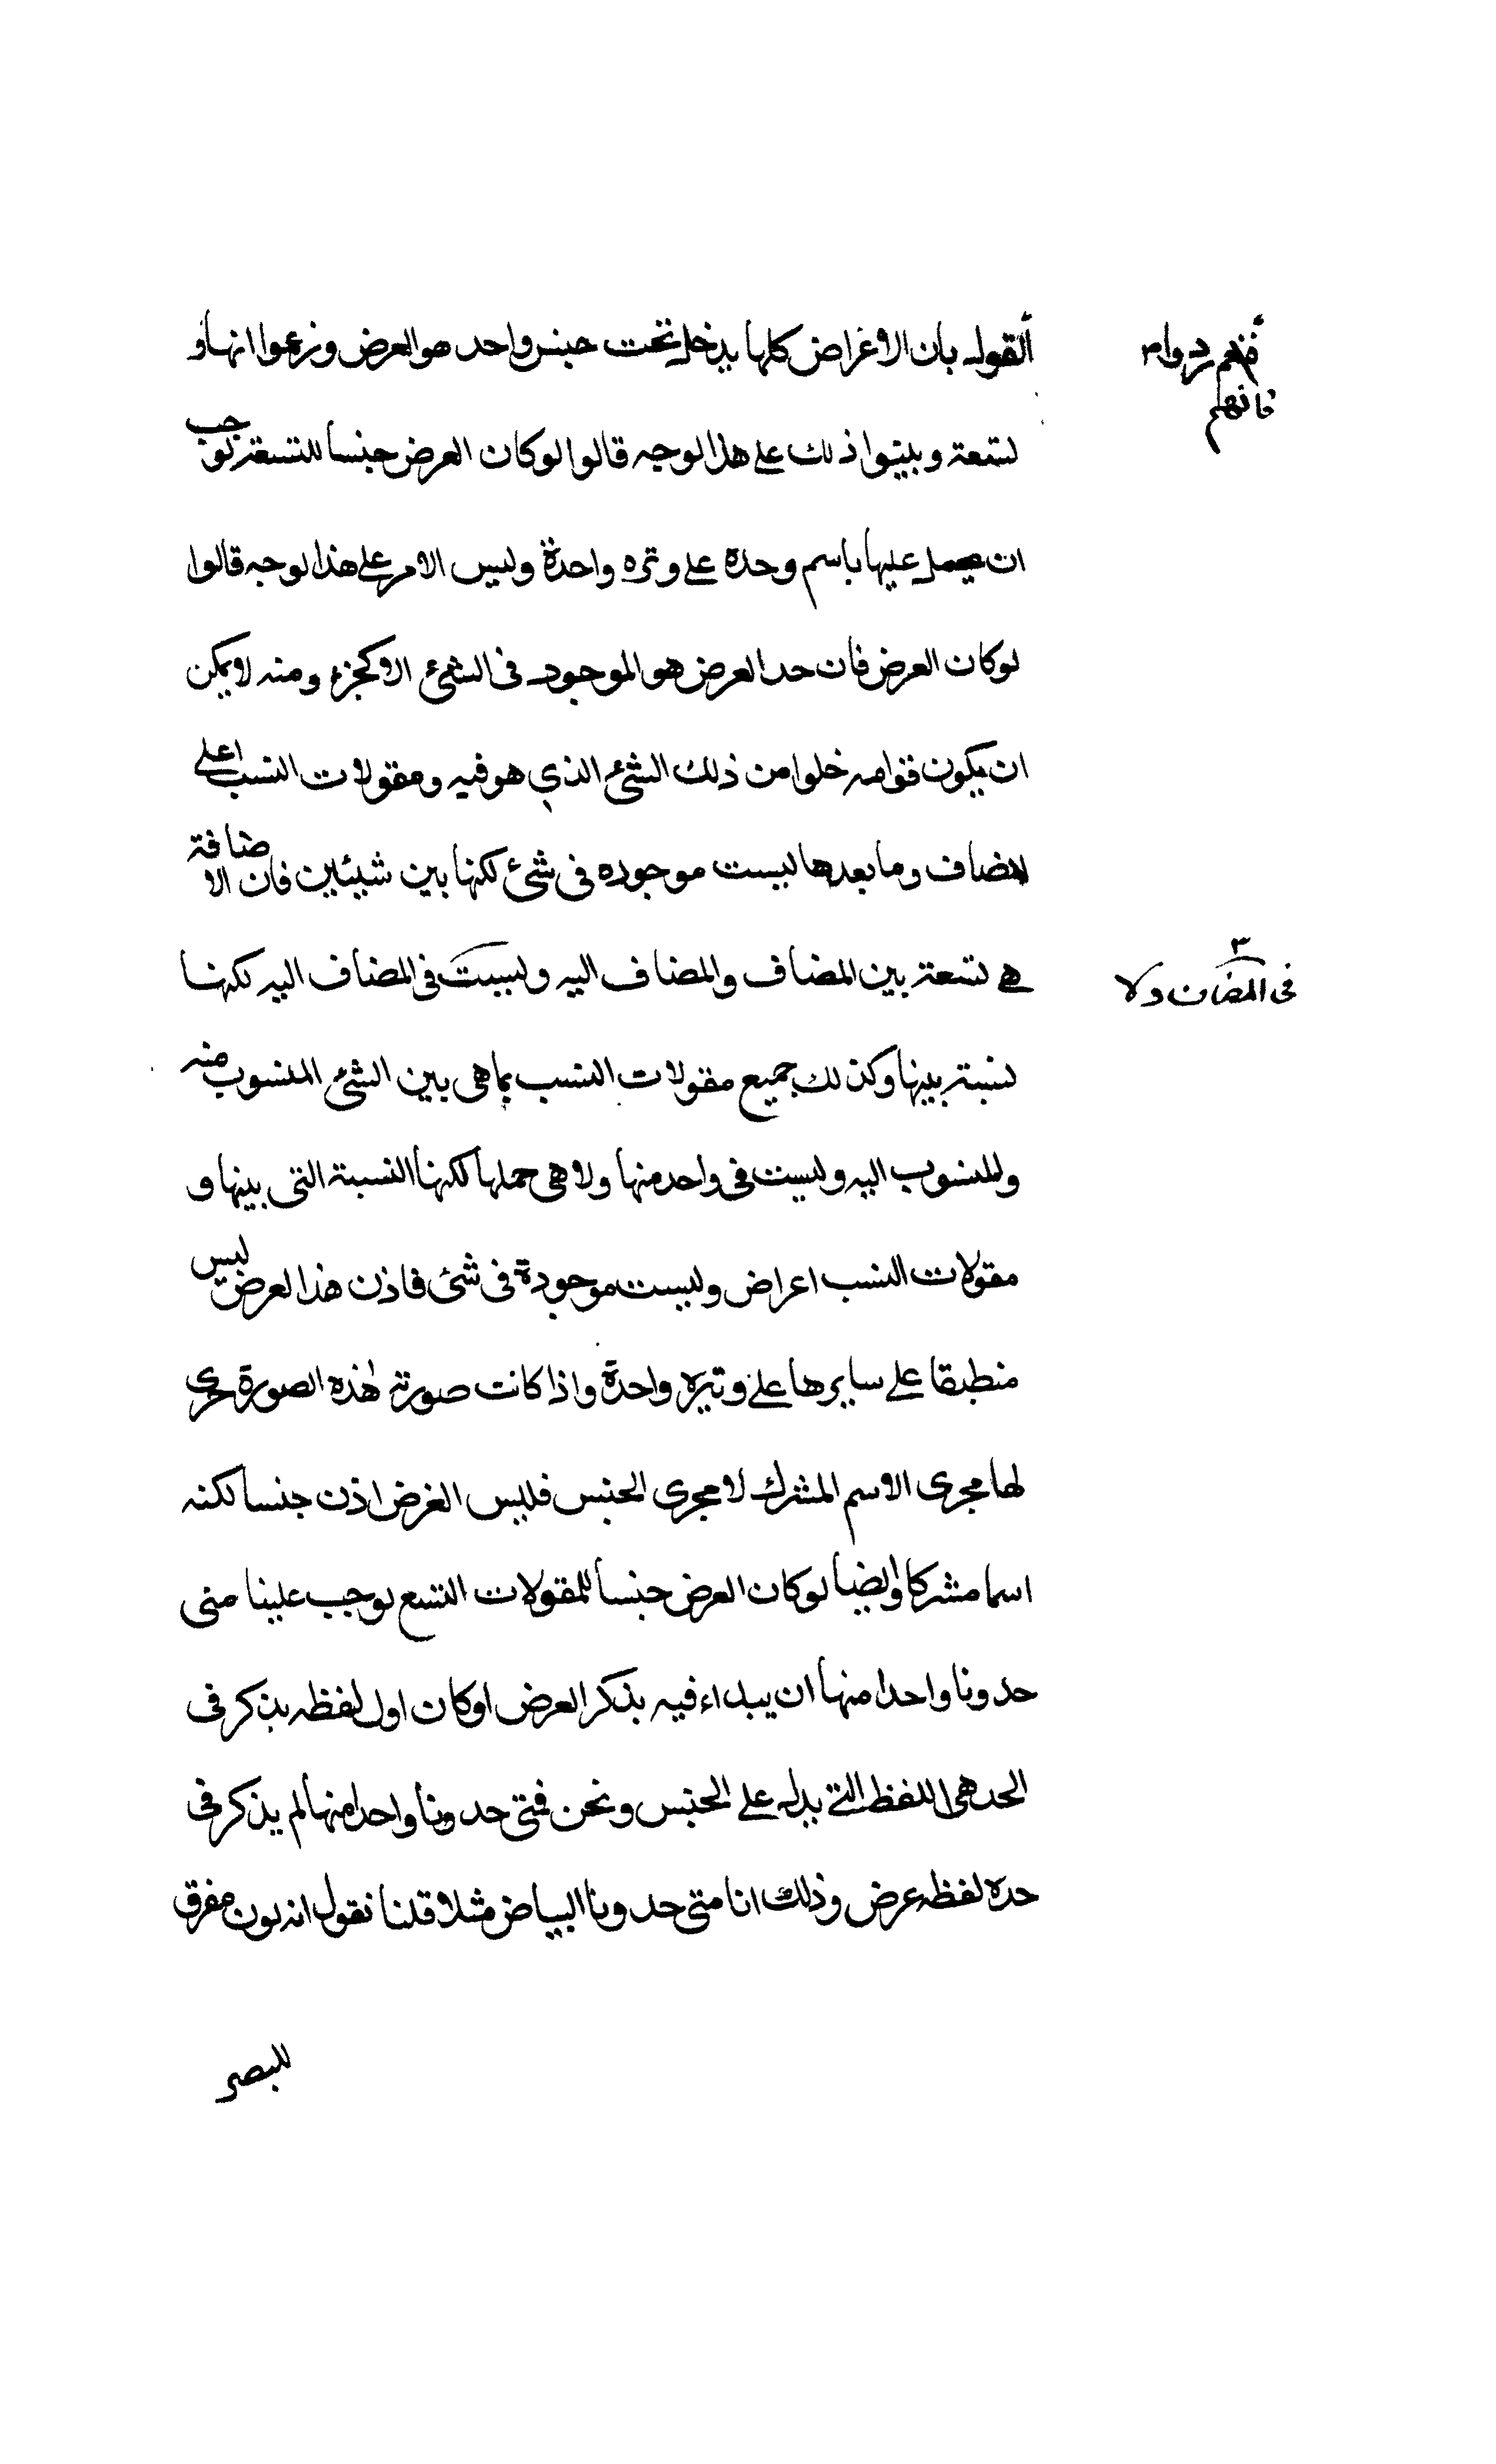 القول بان الاغراض كلها يدخل تحت جنس واحد هو العرض وزعموا انها و
لتسعة وبينوا ذلك على هذا لوجه قالوا لوكان العرض جنسا للتسعة لوجب
ان يحمل عليها باسم وحده على وتره واحدة وليس الامر على هذا لوجه قالوا
لوكان العرض فان حد العرض هو الموجود فى الشئ الا كجزء ومنه لا يمكن
ان يكون قوامه خلوا من ذلك الشئ الذي هو فيه ومقولات النسب اعلى
لامضاف وما بعدها ليست موجوده فى شئ لكنها بين شيئين فان الاضافة
هى تسعة بين المضاف والمضاف اليه وليست فى المضاف اليه لكنها
فى المضاف ولا
نسبة بينها وكذلك جميع مقولات النسب بما هى بين الشئ المنسوب منه
والمنسوب اليه وليست فى واحد منها ولا هى حملها لكنها النسبة التى بينها و
مقولات النسب اعراض وليست موجودة فى شئ فاذن هذا العرض ليس
منطبقا على سايرها على وتيره واحدة واذا كانت صورته هذه الصورة جرى
لها مجرى الاسم المشترك لا مجرى الجنس فليس الغرض اذن جنسا لكنه
اسما مشركا وايضا لوكان العرض جنسا للمقولات التسع لوجب علينا متى
حدونا واحدا منها ان يبداء فيه بذكر العرض اوكان اول لفظه يذكر فى
الحد هى اللفظ التى يدل على الجنس ونحن فمتى حدونا واحدا منها لم يذكر فى
حده لفظه عرض وذلك انا متى حدونا البياض مثلا قلنا نقول انه لون مفرق
للبصر